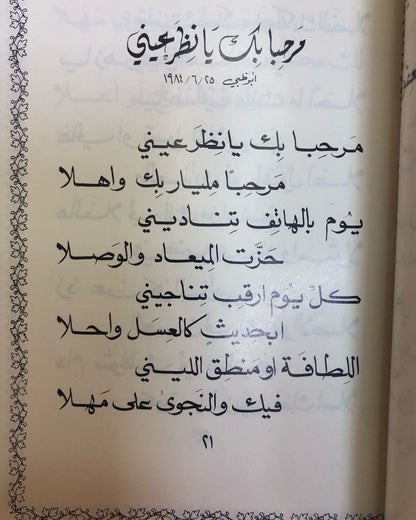 مَرحبا بك يا نظَر عيني
أبوظبي ٢٥/٦/١٩٨٤
مَرحبا بك يا نِظَر عيني
مَرحبًا مليار بك واهلا
يُوم بالهاتف تِناديني
حَزَّت الميعاد والوَصلا
كلّ يُوم ارقب تناجيني
ابحديثٍ كالعِسَل واحلا
اللطافَة اومَنطق الليني
فيك والنَجوى على مَهلا
٢١